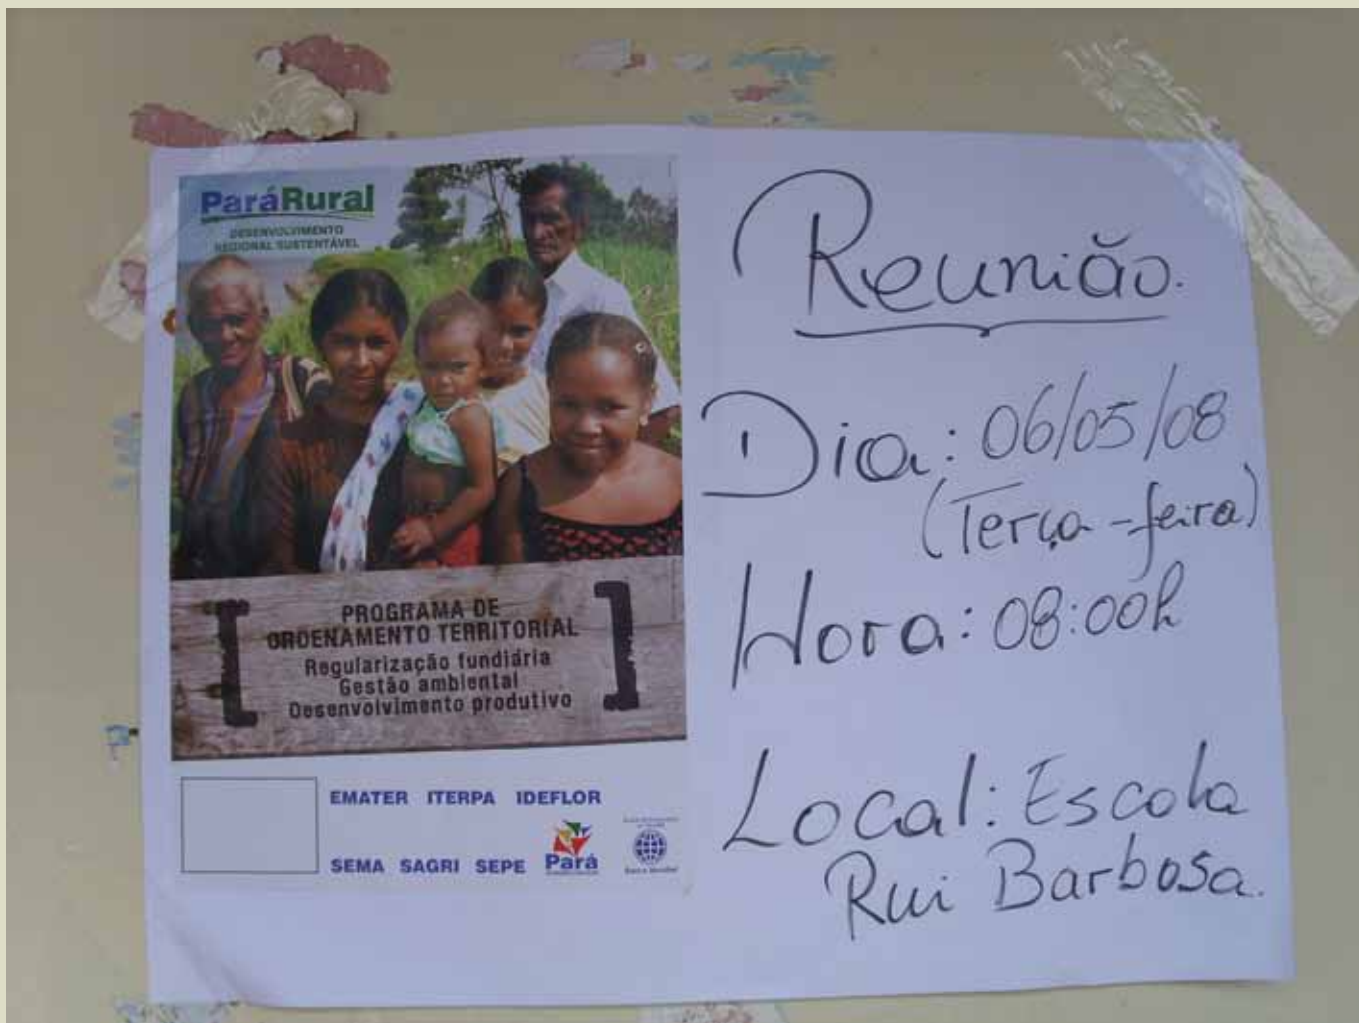 ParáRural
DESENVOLVIMENTO
REGIONAL SUSTENTÁVEL
PROGRAMA DE
ORDENAMENTO TERRITORIAL
Regularização fundiária
Gestão ambiental
Desenvolvimento produtivo
EMATER ITERPA IDEFLOR
SEMA SAGRI SEPE
Pará
Banco Mundial
Reunião.
Dia: 06/05/08
(Terça-feira)
Hora: 08:00h
Local: Escola
Rui Barbosa.